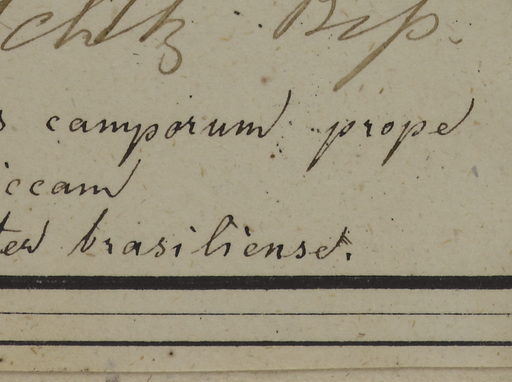 chltz Bip.
s camporum prope
iccam
ter brasiliense.